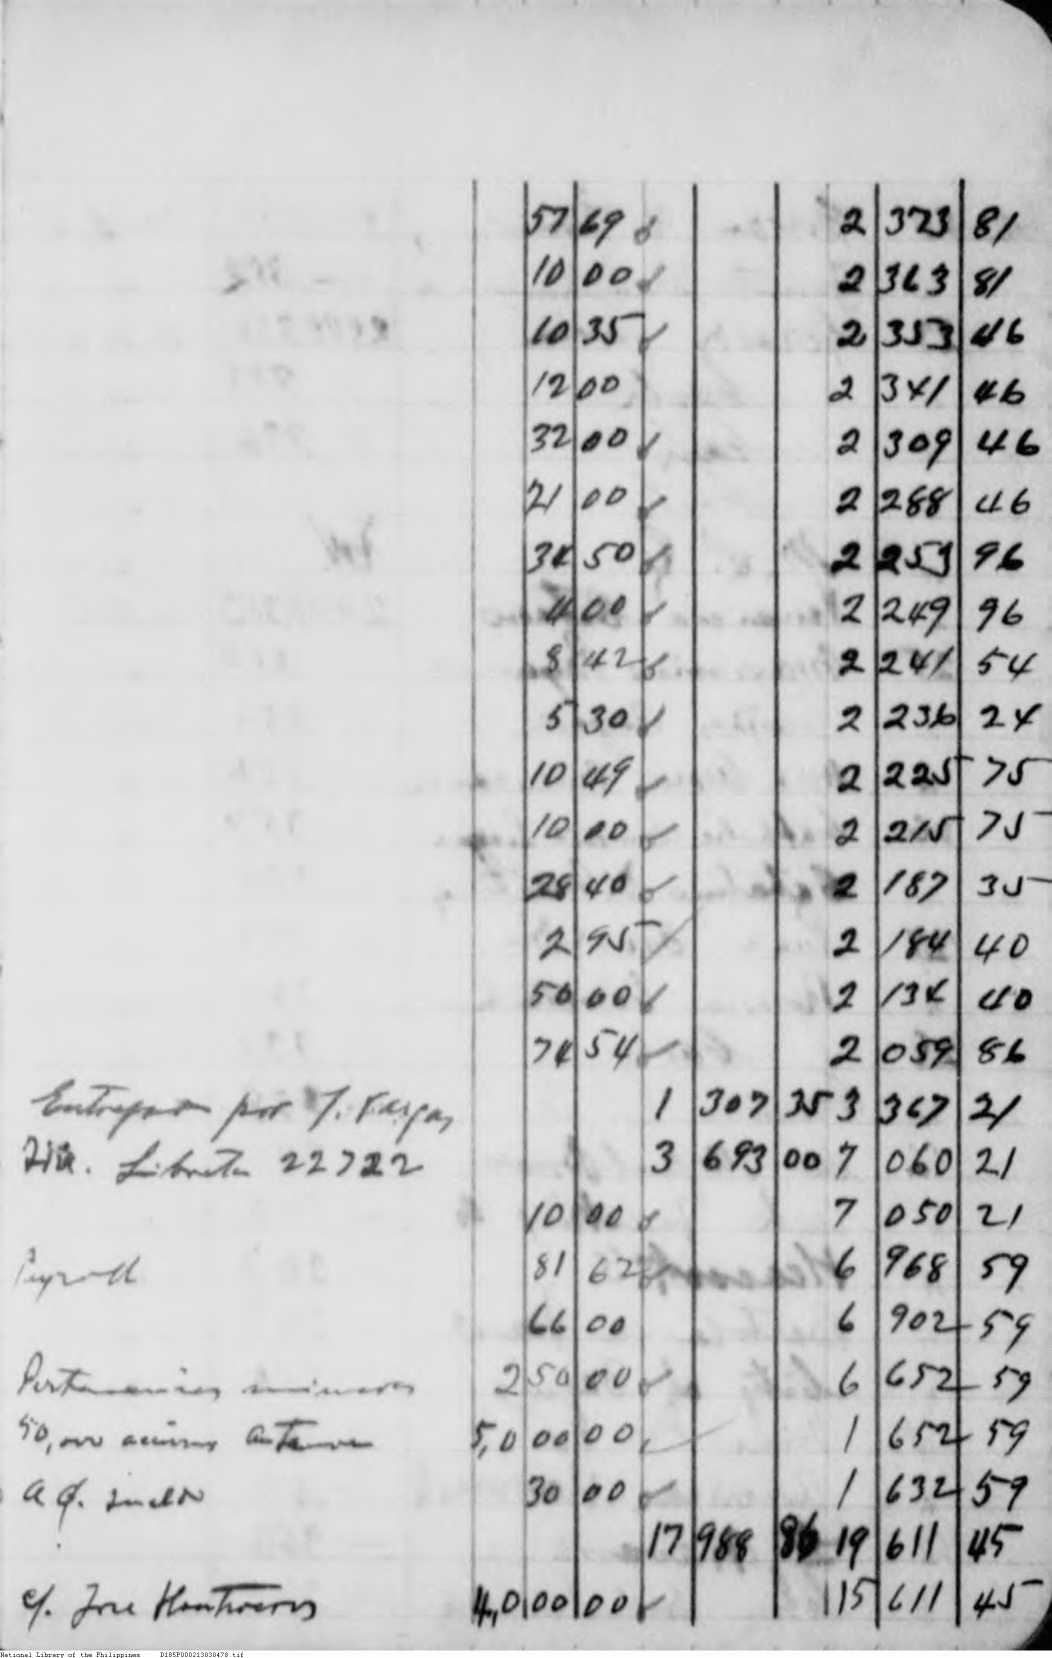 57 69 2 373 81
10 00 2 363 81
10 35 2 353 46
12 00 2 341 46
32 00 2 309 46
21 00 2 288 46
34 50 2 253 96
4 00 2 249 96
8 42 2 241 54
5 30 2 236 24
10 49 2 225 75
10 00 2 215 75
28 40 2 187 35
2 95 2 184 40
50 00 2 134 40
74 54 2 059 86
por J. Vargas 1 307 35 3 367 21
Libreta 22722 3 693 00 7 060 21
10 00 7 050 21
Payroll 81 62 6 968 59
66 00 6 902 59
Pertenencias mineras 250 00 6 652 59
50,000 acciones 5,000 00 1 652 59
30 00 1 632 59
17 988 86 19 611 45
c/. Jose 4,000 00 15 611 45
National Library of the Philippines D185P000213030478.tif